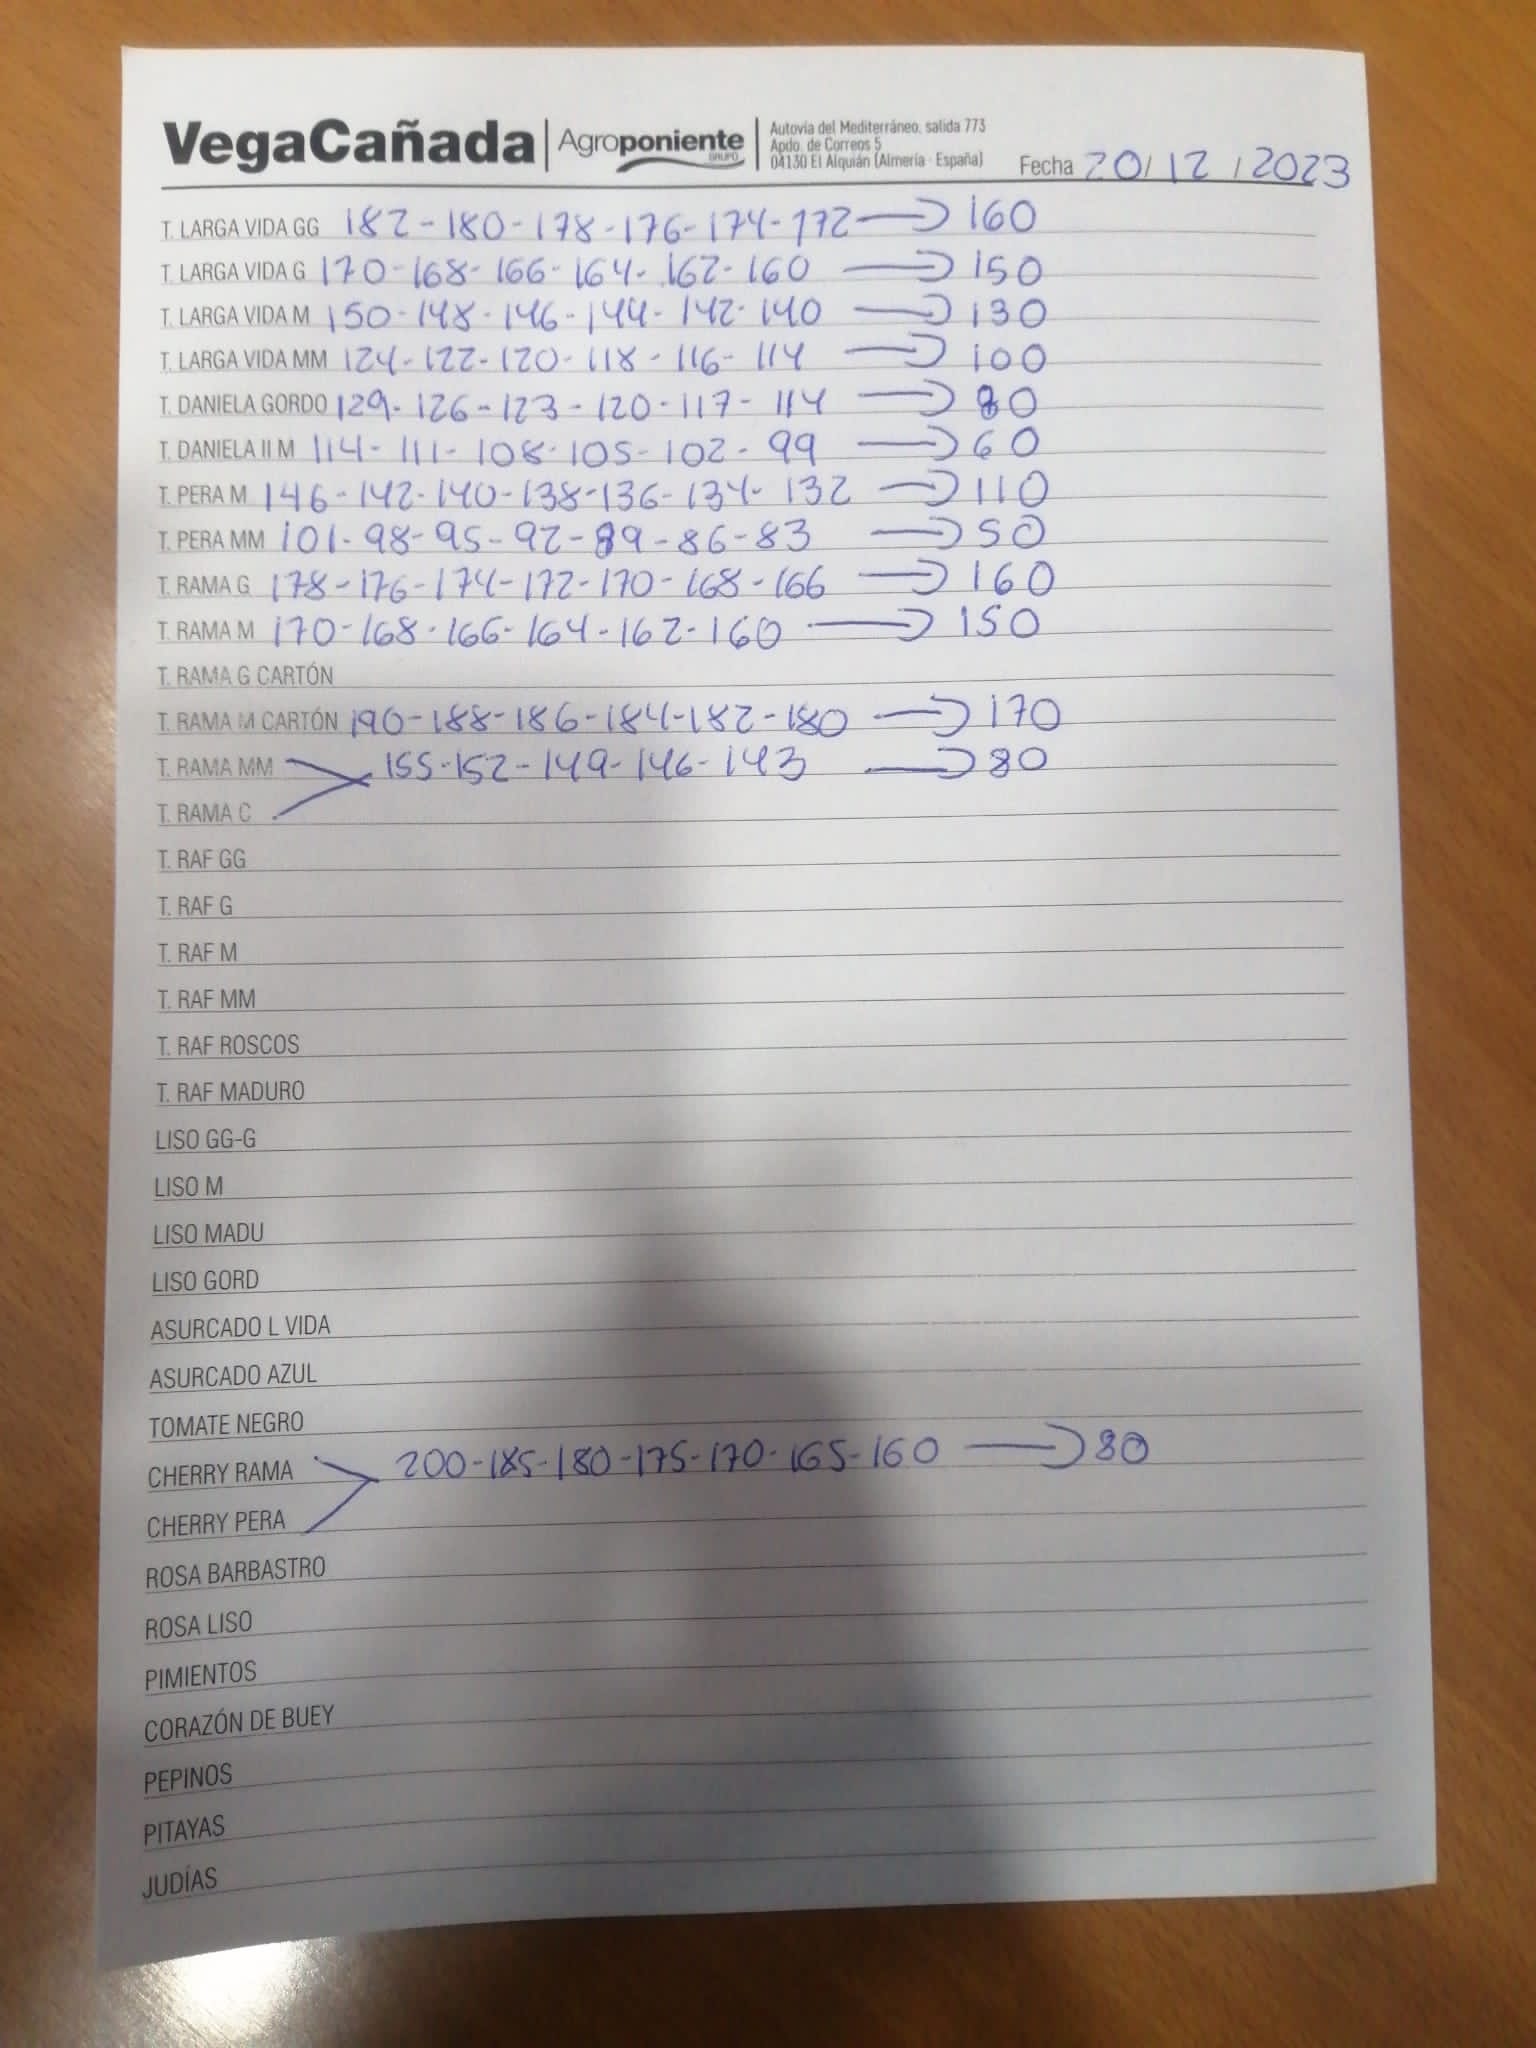 VegaCañada | Agroponiente GRUPO | Autovía del Mediterráneo, salida 773
Apdo. de Correos 5
04130 El Alquián (Almería - España)
Fecha 20/12/2023
T. LARGA VIDA GG 182-180-178-176-174-172 → 160
T. LARGA VIDA G 170-168-166-164-162-160 → 150
T. LARGA VIDA M 150-148-146-144-142-140 → 130
T. LARGA VIDA MM 124-122-120-118-116-114 → 100
T. DANIELA GORDO 129-126-123-120-117-114 → 80
T. DANIELA II M 114-111-108-105-102-99 → 60
T. PERA M 146-142-140-138-136-134-132 → 110
T. PERA MM 101-98-95-92-89-86-83 → 50
T. RAMA G 178-176-174-172-170-168-166 → 160
T. RAMA M 170-168-166-164-162-160 → 150
T. RAMA G CARTÓN
T. RAMA M CARTÓN 190-188-186-184-182-180 → 170
T. RAMA MM 155-152-149-146-143 → 80
T. RAMA C
T. RAF GG
T. RAF G
T. RAF M
T. RAF MM
T. RAF ROSCOS
T. RAF MADURO
LISO GG-G
LISO M
LISO MADU
LISO GORD
ASURCADO L VIDA
ASURCADO AZUL
TOMATE NEGRO
CHERRY RAMA 200-185-180-175-170-165-160 → 80
CHERRY PERA
ROSA BARBASTRO
ROSA LISO
PIMIENTOS
CORAZÓN DE BUEY
PEPINOS
PITAYAS
JUDÍAS